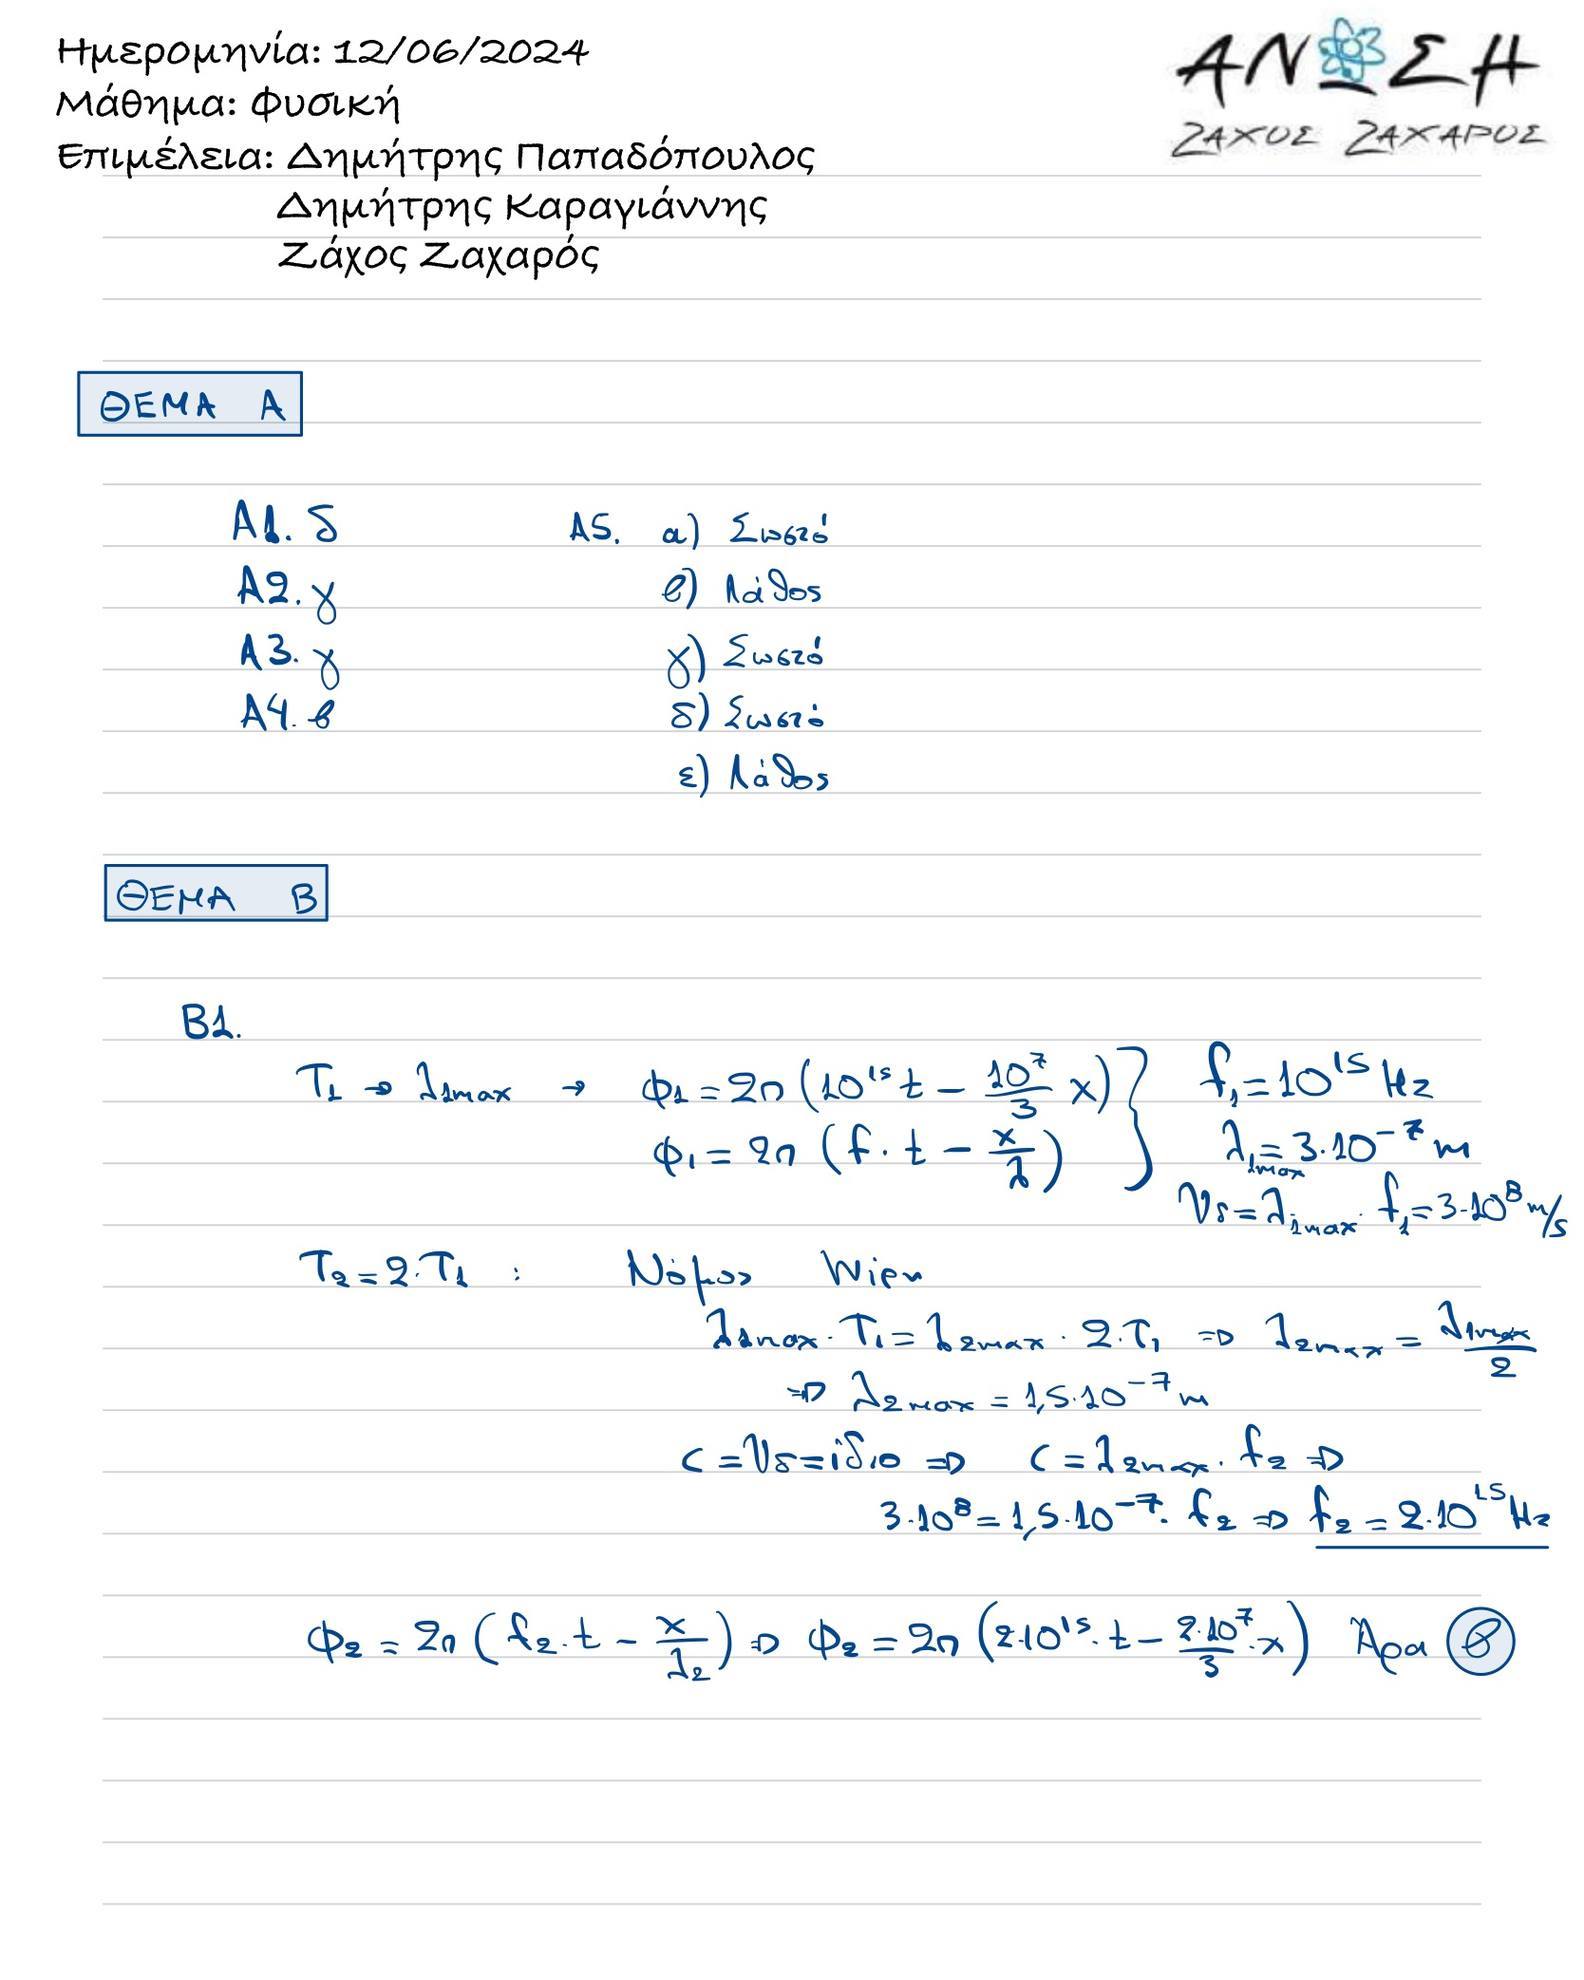 Ημερομηνία: 12/06/2024
Μάθημα: Φυσική
Επιμέλεια: Δημήτρης Παπαδόπουλος
Δημήτρης Καραγιάννης
Ζάχος Ζαχαρός
ΑΝΩΣΗ
ΖΑΧΟΣ ΖΑΧΑΡΟΣ
ΘΕΜΑ Α
Α1. δ
Α2. γ
Α3. γ
Α4. β
Α5. α) Σωστό
β) Λάθος
γ) Σωστό
δ) Σωστό
ε) Λάθος
ΘΕΜΑ Β
Β1.
T₁ → λ₁max → φ₁ = 2π (10¹⁵ t − 10⁷/3 x) } f₁ = 10¹⁵ Hz
φ₁ = 2π (f · t − x/λ) λ₁max = 3·10⁻⁷ m
υδ = λ₁max · f₁ = 3·10⁸ m/s
T₂ = 2·T₁ : Νόμος Wien
λ₁max · T₁ = λ₂max · 2·T₁ ⇒ λ₂max = λ₁max/2
⇒ λ₂max = 1,5·10⁻⁷ m
c = υδ = ίδιο ⇒ c = λ₂max · f₂ ⇒
3·10⁸ = 1,5·10⁻⁷ · f₂ ⇒ f₂ = 2·10¹⁵ Hz
φ₂ = 2π (f₂·t − x/λ₂) ⇒ φ₂ = 2π (2·10¹⁵·t − 2·10⁷/3·x) Άρα β